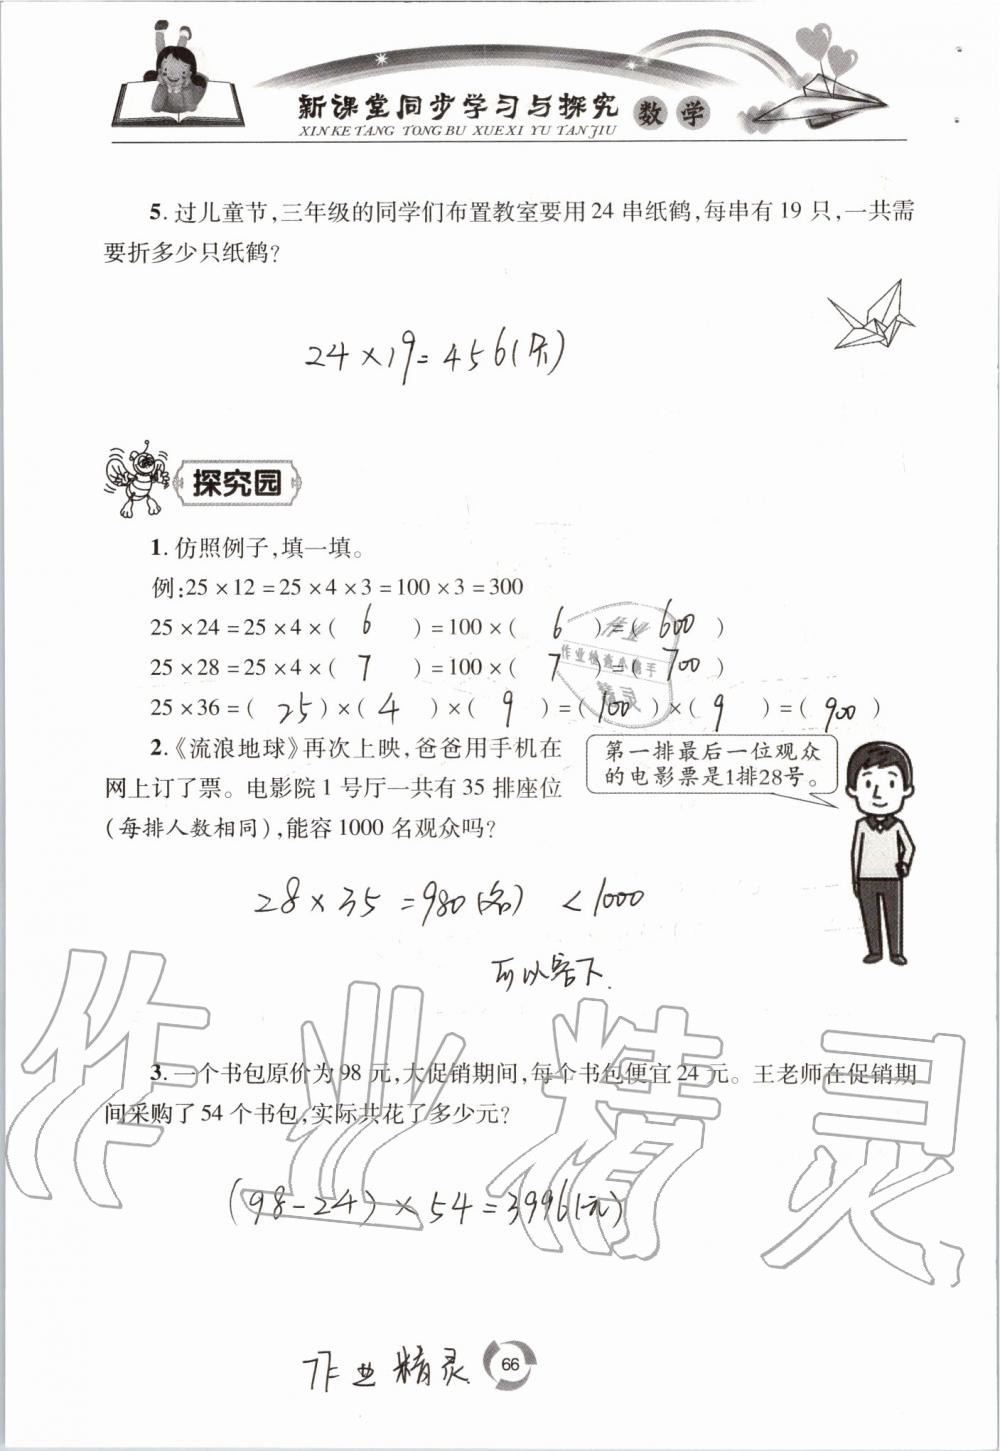 新课堂同步学习与探究 数学
XIN KE TANG TONG BU XUE XI YU TAN JIU
5. 过儿童节,三年级的同学们布置教室要用 24 串纸鹤,每串有 19 只,一共需
要折多少只纸鹤?
24×19=456(只)
探究园
1. 仿照例子,填一填。
例:25×12=25×4×3=100×3=300
25×24=25×4×( 6 )=100×( 6 )=( 600 )
25×28=25×4×( 7 )=100×( 7 )=( 700 )
25×36=( 25 )×( 4 )×( 9 )=( 100 )×( 9 )=( 900 )
作业
作业检查小助手
精灵
2.《流浪地球》再次上映,爸爸用手机在
网上订了票。电影院 1 号厅一共有 35 排座位
(每排人数相同),能容 1000 名观众吗?
第一排最后一位观众
的电影票是1排28号。
28×35=980(名) <1000
可以容下.
3. 一个书包原价为 98 元,大促销期间,每个书包便宜 24 元。王老师在促销期
间采购了 54 个书包,实际共花了多少元?
(98-24)×54=3996(元)
作业精灵
作业精灵
66